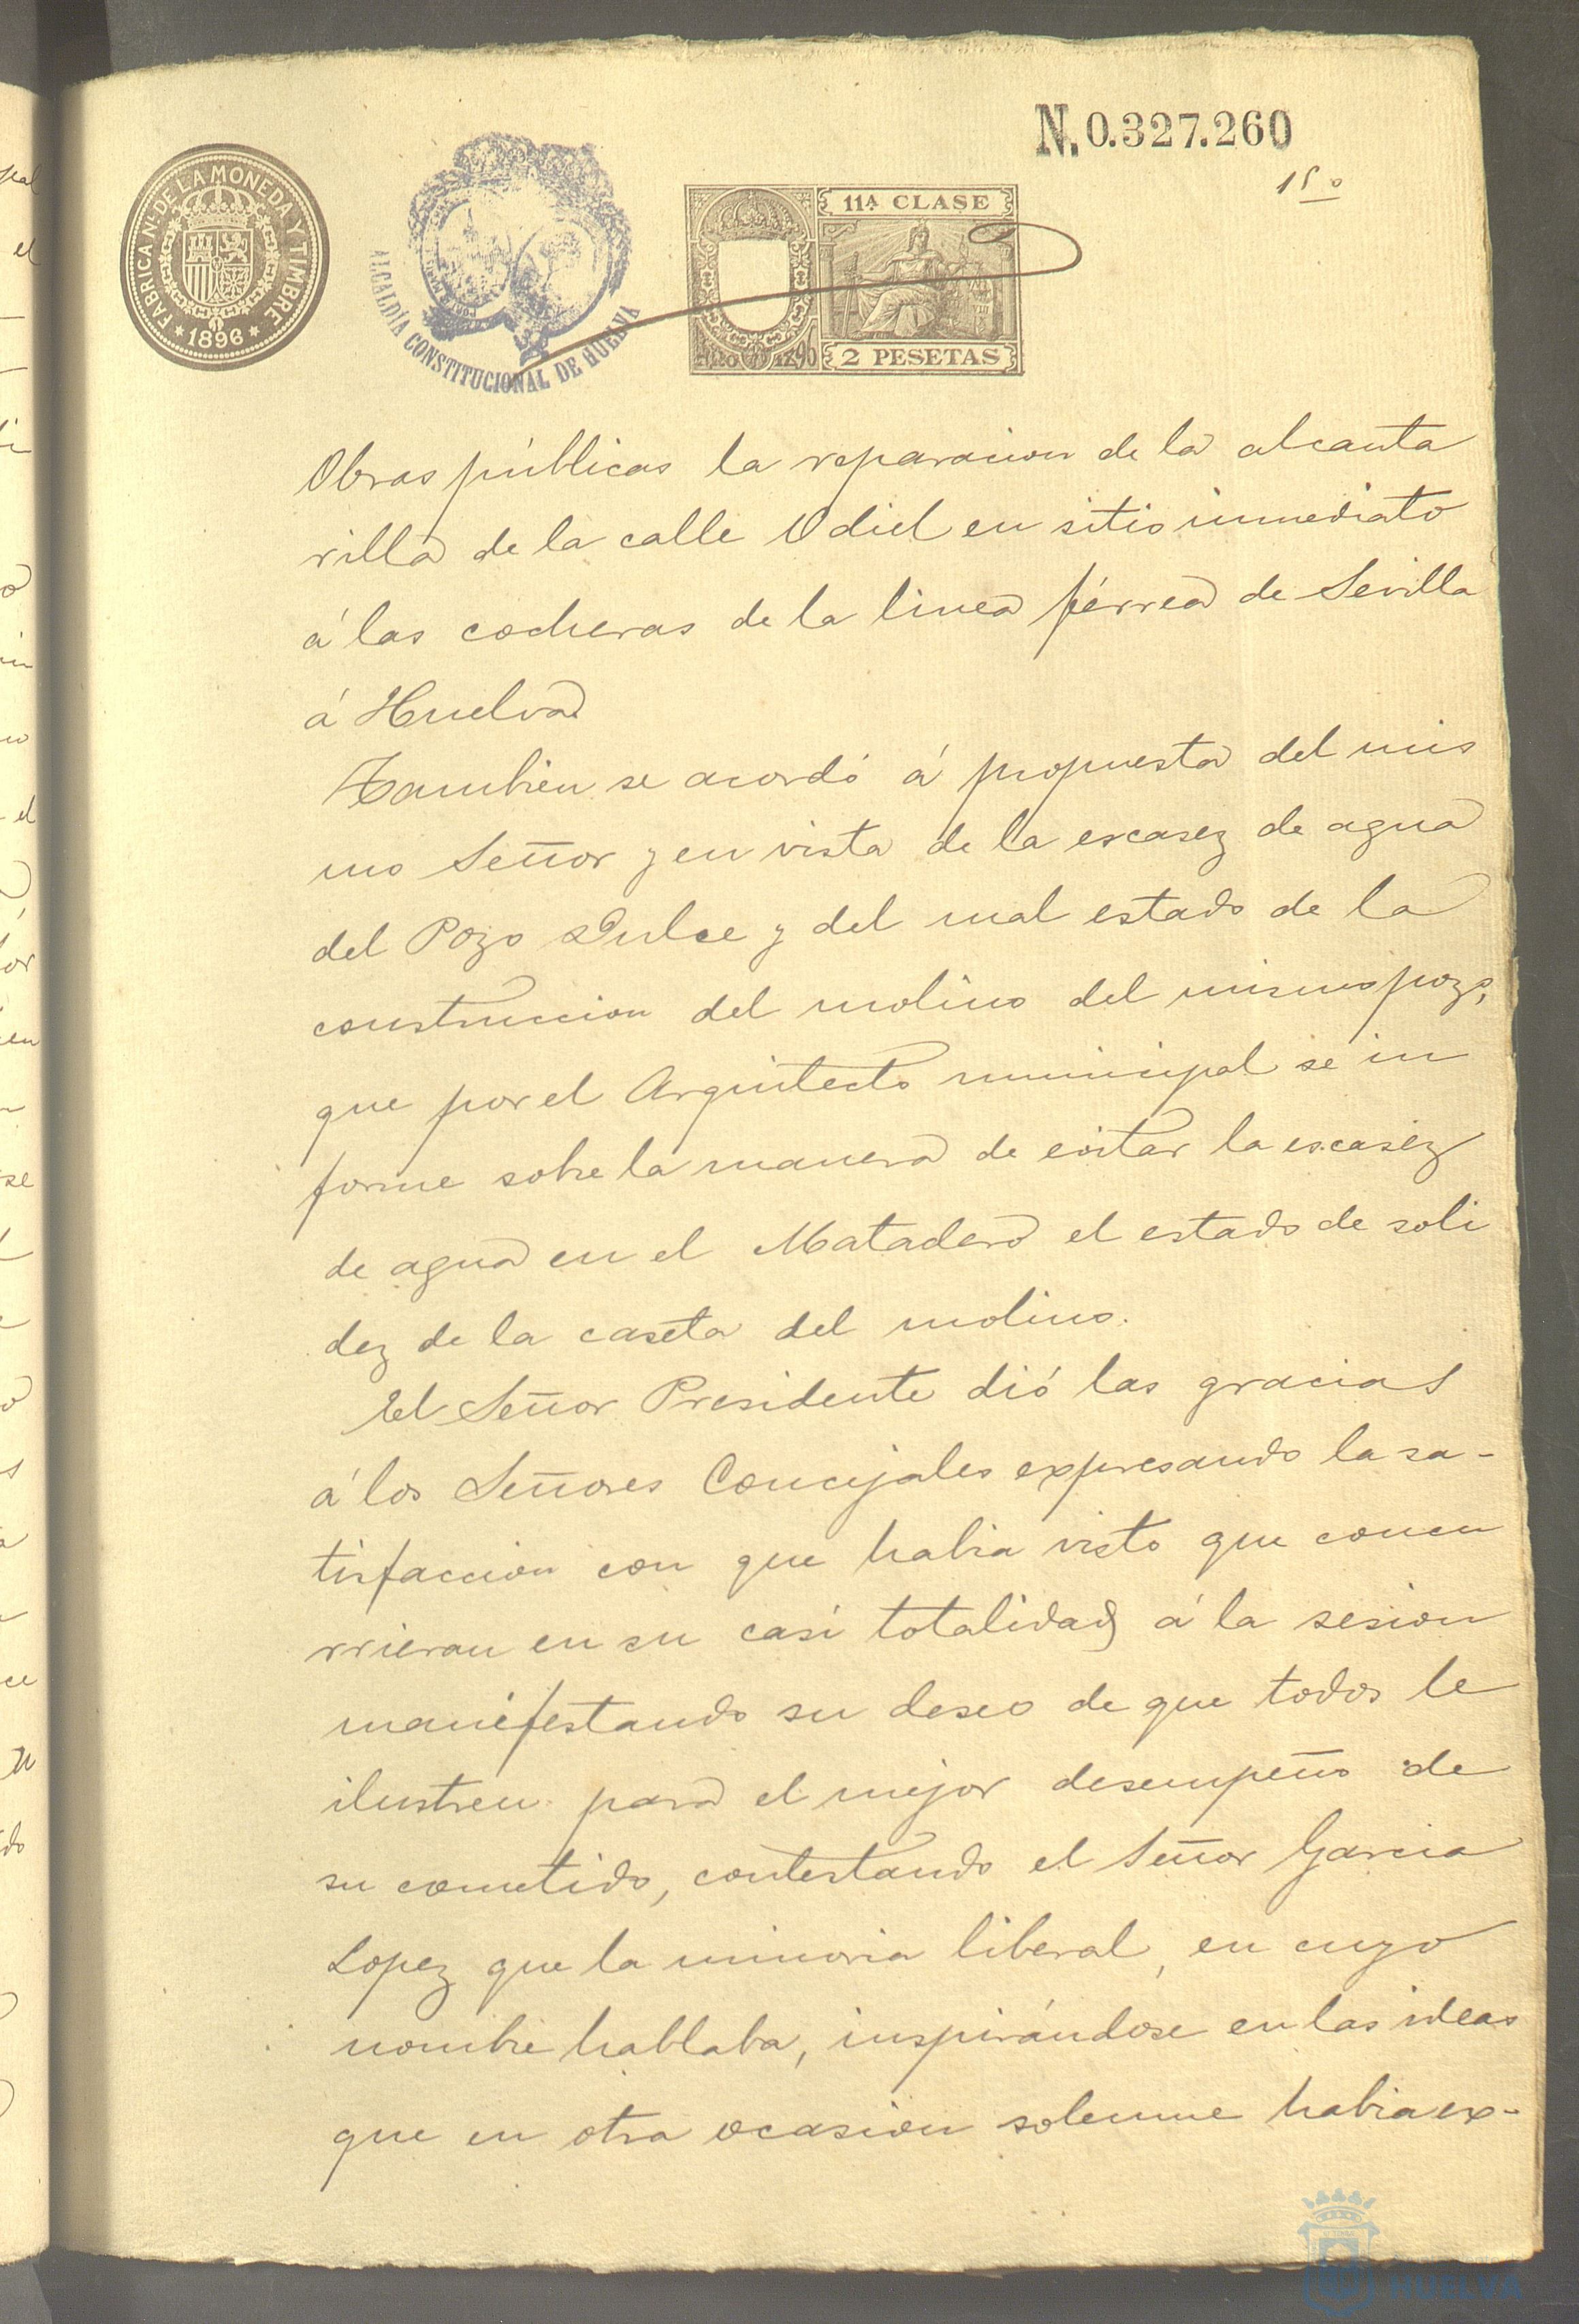 N. 0.327.260
FABRICA Nal. DE LA MONEDA Y TIMBRE
* 1896 *
ALCALDÍA CONSTITUCIONAL DE HUELVA
11ª CLASE
2 PESETAS
Obras públicas la reparacion de la alcanta
rilla de la calle Odiel en sitio inmediato
á las cocheras de la linea férrea de Sevilla
á Huelva
Tambien se acordó á propuesta del mis
mo Señor y en vista de la escasez de agua
del Pozo Dulce y del mal estado de la
construccion del molino del mismo pozo,
que por el Arquitecto municipal se in
forme sobre la manera de evitar la escasez
de agua en el Matadero el estado de soli
dez de la caseta del molino.
El Señor Presidente dió las gracias
á los Señores Concejales expresando la sa-
tisfaccion con que habia visto que concu
rrieran en su casi totalidad á la sesion
manifestando su deseo de que todos le
ilustren para el mejor desempeño de
su cometido, contestando el Señor Garcia
Lopez que la minoria liberal, en cuyo
nombre hablaba, inspirándose en las ideas
que en otra ocasion solemne habia ex-
HUELVA